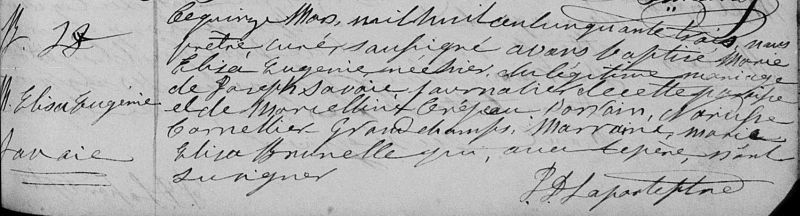 B. 28
M. Elisa Eugénie
Savaie
Le quinze Mars, mil huit cent cinquante trois, nous
prêtre curé soussigné avons baptisé Marie
Elisa Eugenie née hier, du légitime mariage
de Joseph Savoie, journalier de cette paroisse
et de Marcelline Crépeau. Parrain,
Cornellier Grandchamps, Marraine, Marie
Elisa Brunelle qui, avec le père, n'ont
su signer
Laporte ptre